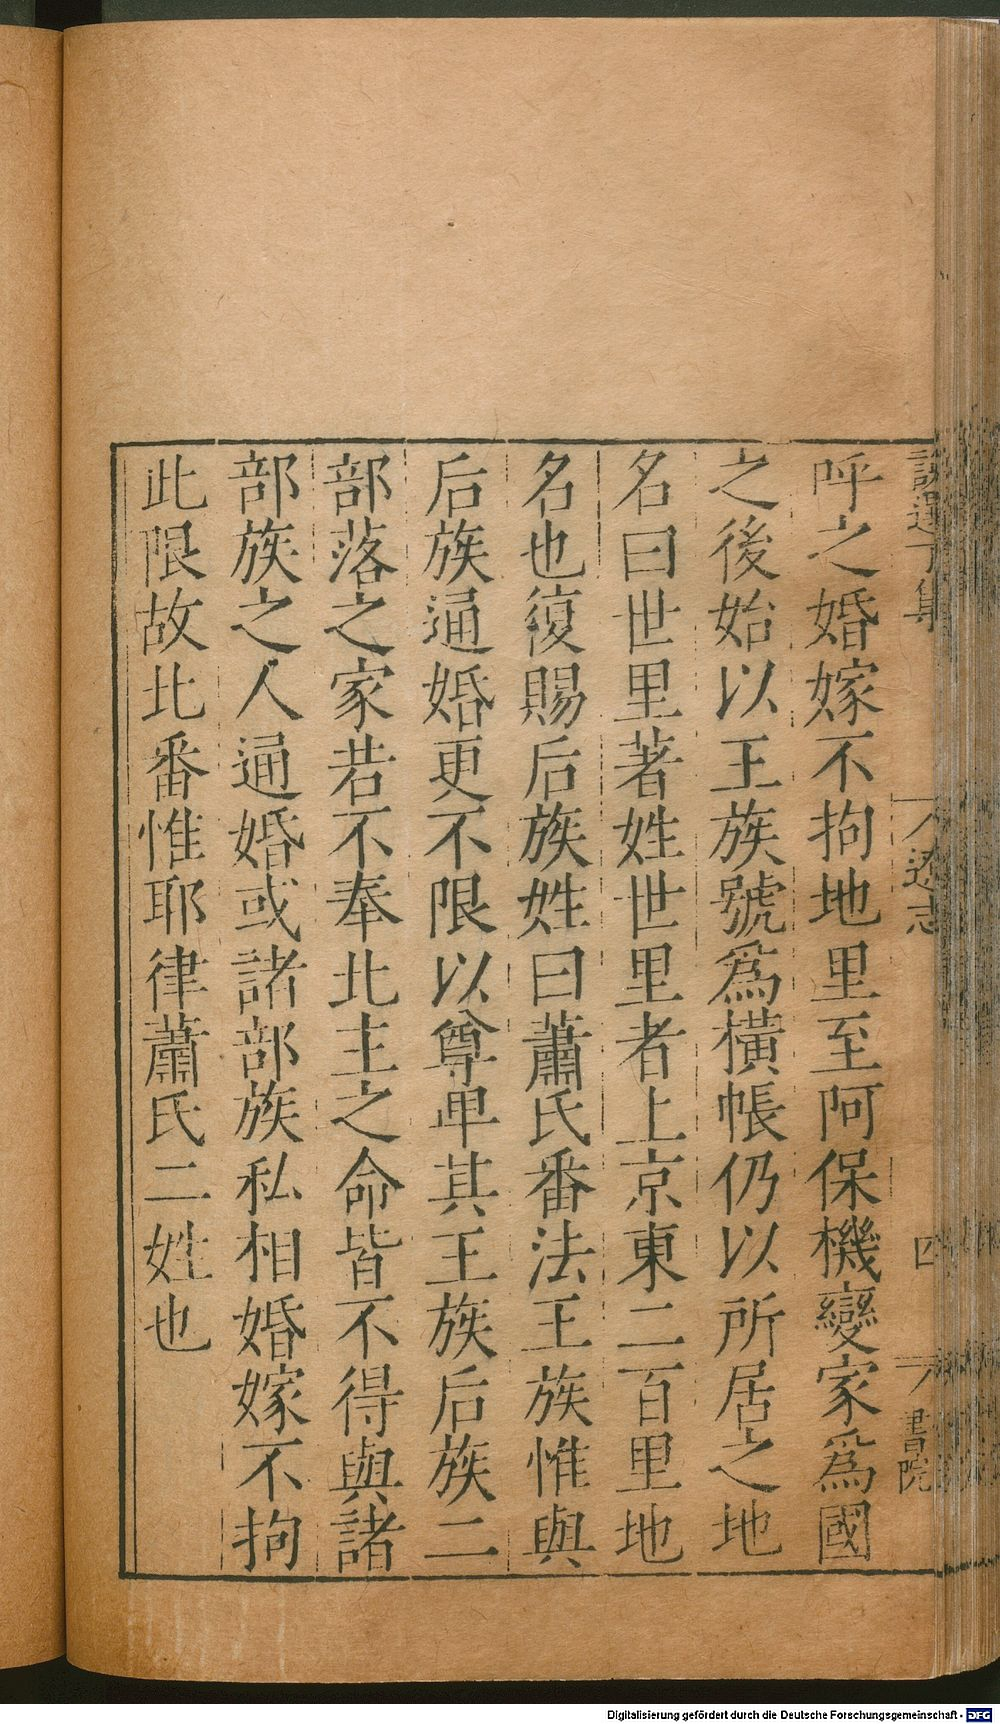 說選丁集
遼志
四
書院
呼之婚嫁不拘地里至阿保機變家爲國
之後始以王族號爲橫帳仍以所居之地
名曰世里著姓世里者上京東二百里地
名也復賜后族姓曰蕭氏番法王族惟與
后族通婚更不限以尊卑其王族后族二
部落之家若不奉北主之命皆不得與諸
部族之人通婚或諸部族私相婚嫁不拘
此限故北番惟耶律蕭氏二姓也
Digitalisierung gefördert durch die Deutsche Forschungsgemeinschaft - DFG